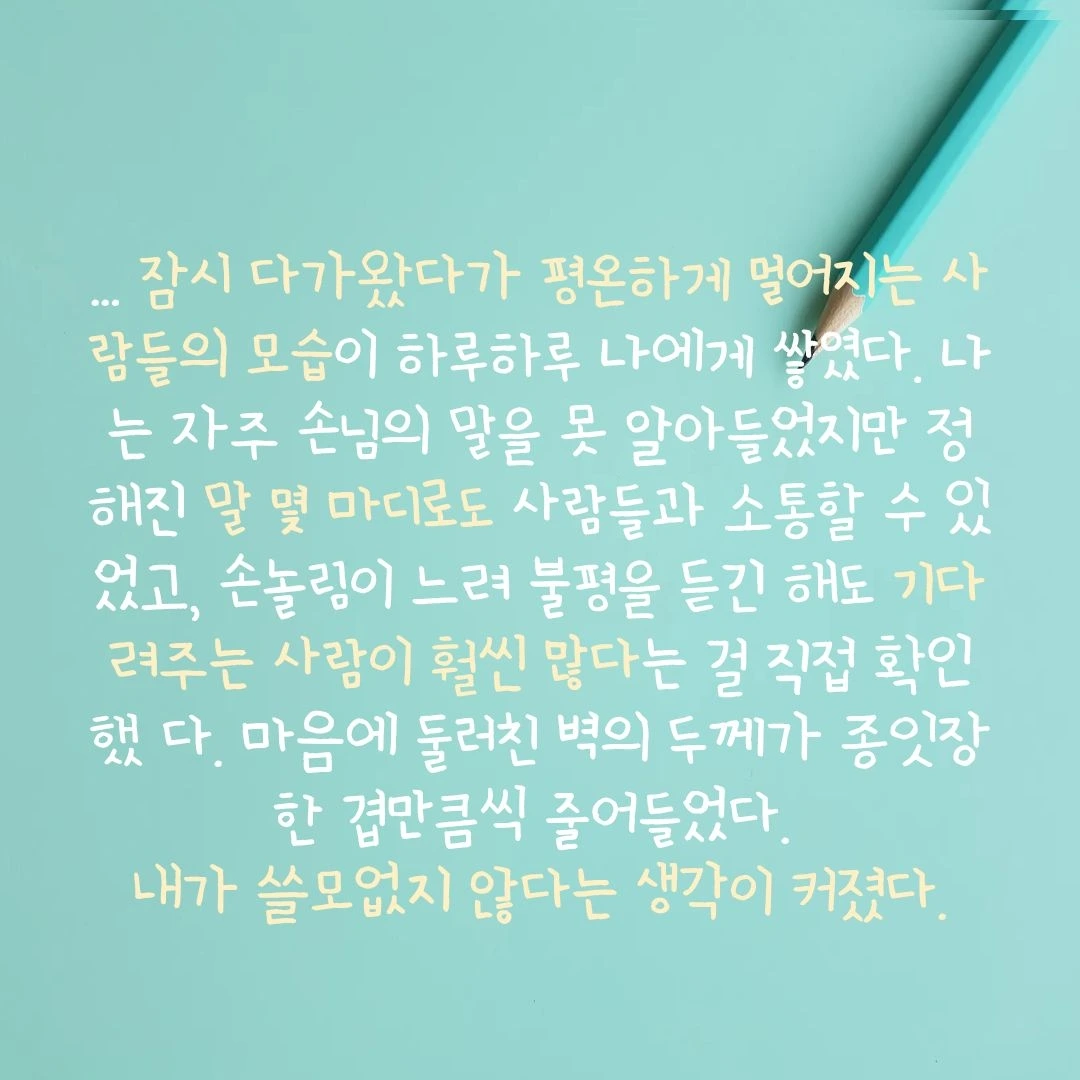 ... 잠시 다가왔다가 평온하게 멀어지는 사
람들의 모습이 하루하루 나에게 쌓였다. 나
는 자주 손님의 말을 못 알아들었지만 정
해진 말 몇 마디로도 사람들과 소통할 수 있
었고, 손놀림이 느려 불평을 듣긴 해도 기다
려주는 사람이 훨씬 많다는 걸 직접 확인
했 다. 마음에 둘러친 벽의 두께가 종잇장
한 겹만큼씩 줄어들었다.
내가 쓸모없지 않다는 생각이 커졌다.